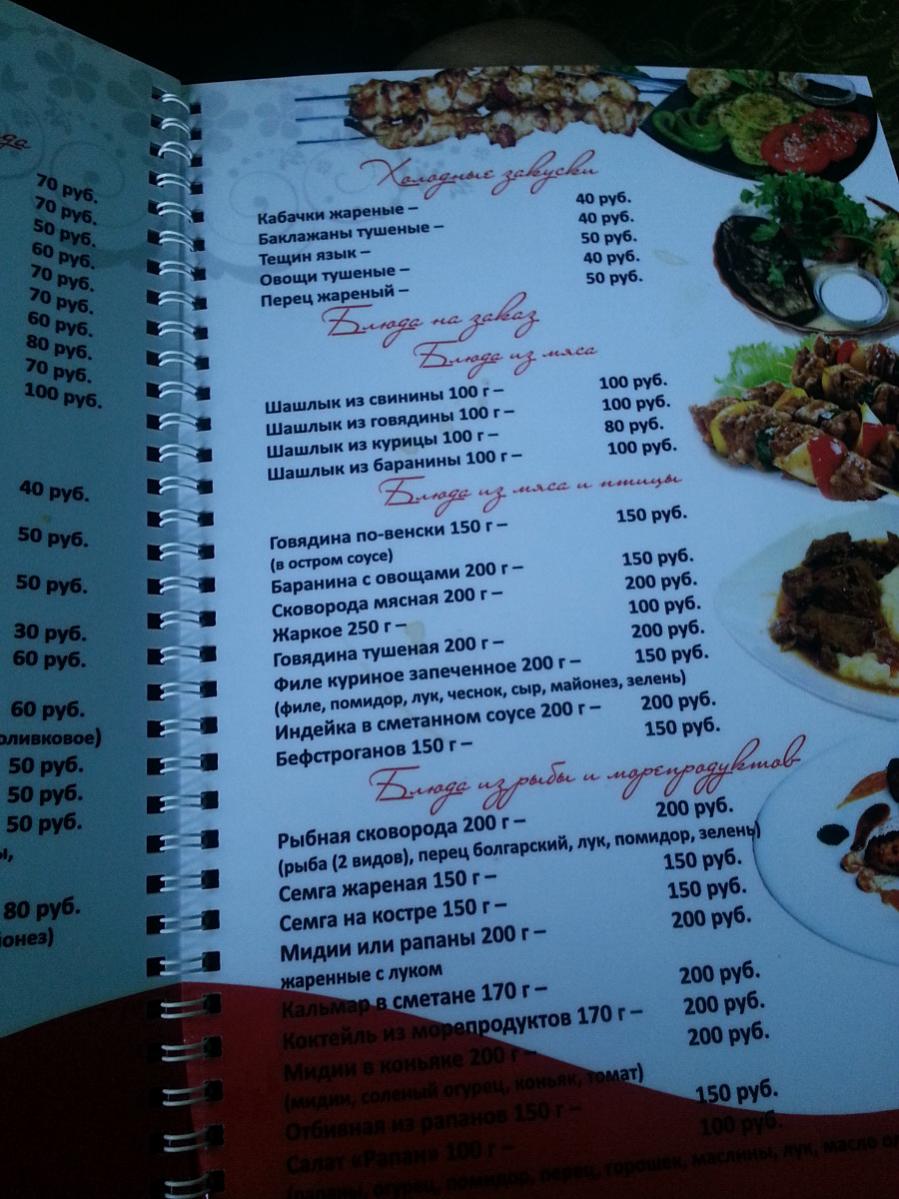 да
70 руб.
70 руб.
50 руб.
60 руб.
70 руб.
70 руб.
60 руб.
80 руб.
70 руб.
100 руб.
40 руб.
50 руб.
50 руб.
30 руб.
60 руб.
60 руб.
оливковое)
50 руб.
50 руб.
50 руб.
ы,
80 руб.
ионез)
Холодные закуски
Кабачки жареные – 40 руб.
Баклажаны тушеные – 40 руб.
Тещин язык – 50 руб.
Овощи тушеные – 40 руб.
Перец жареный – 50 руб.
Блюда на заказ
Блюда из мяса
Шашлык из свинины 100 г – 100 руб.
Шашлык из говядины 100 г – 100 руб.
Шашлык из курицы 100 г – 80 руб.
Шашлык из баранины 100 г – 100 руб.
Блюда из мяса и птицы
Говядина по-венски 150 г – 150 руб.
(в остром соусе)
Баранина с овощами 200 г – 150 руб.
Сковорода мясная 200 г – 200 руб.
Жаркое 250 г – 100 руб.
Говядина тушеная 200 г – 200 руб.
Филе куриное запеченное 200 г – 150 руб.
(филе, помидор, лук, чеснок, сыр, майонез, зелень)
Индейка в сметанном соусе 200 г – 200 руб.
Бефстроганов 150 г – 150 руб.
Блюда из рыбы и морепродуктов
Рыбная сковорода 200 г – 200 руб.
(рыба (2 видов), перец болгарский, лук, помидор, зелень)
Семга жареная 150 г – 150 руб.
Семга на костре 150 г – 150 руб.
Мидии или рапаны 200 г – 200 руб.
жаренные с луком
Кальмар в сметане 170 г – 200 руб.
Коктейль из морепродуктов 170 г – 200 руб.
Мидии в коньяке 200 г – 200 руб.
(мидии, соленый огурец, коньяк, томат)
Отбивная из рапанов 150 г – 150 руб.
Салат «Рапан» 100 г – 100 руб.
(рапаны, огурец, помидор, перец, горошек, маслины, лук, масло ол